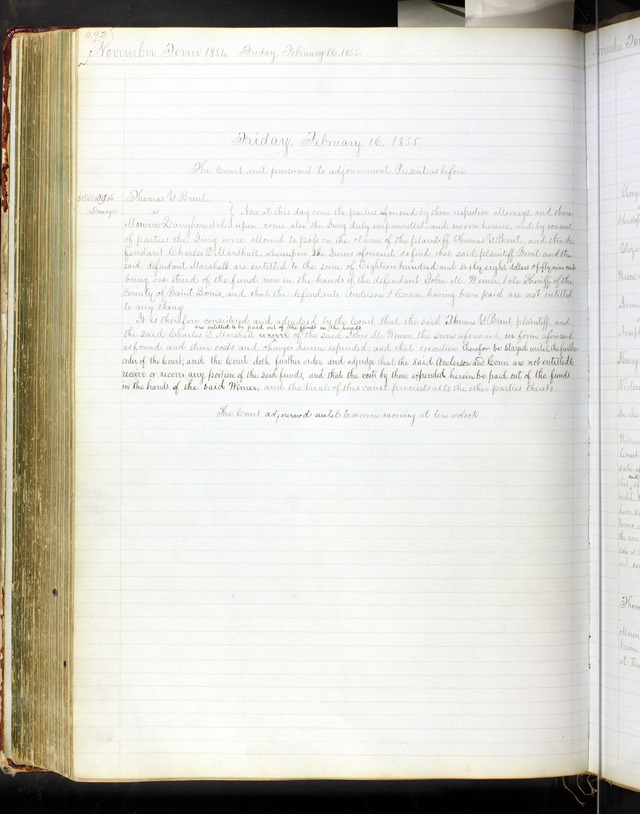 492
November Term 1854. Friday, February 16, 1855.
Friday, February 16, 1855
The Court met pursuant to adjournment. Present as before.
Thomas Y Brent
Damages vs } Now at this day come the parties aforesaid by their respective attorneys, and there
Maurice Langhorne et al upon come also the Jury duly empannelled and sworn herein, and by consent
of parties the Jury were allowed to pass on the claims of the plaintiff Thomas Y Brent, and the de
fendant Charles C Marshall, whereupon the Jurors aforesaid do find that said plaintiff Brent and the
said defendant Marshall are entitled to the sum of Eighteen hundred and sixty eight dollars & fifty nine cents
being one third of the funds now in the hands of the defendant John M. Wimer, late Sheriff of the
County of Saint Louis, and that the defendants Anderson & Conn having been paid are not entitled
to any thing.
It is therefore considered and adjudged by the Court, that the said Thomas Y Brent plaintiff, and
are entitled to be paid out of the funds in the hands
the said Charles C Marshall recover of the said John M. Wimer, the sum aforesaid in form aforesaid
as found, and their costs and charges herein expended, and that execution therefor be stayed until the further
order of the Court, and the Court doth further order and adjudge that the said Anderson and Conn are not entitled to
receive or recover any portion of the said funds, and that the costs by them expended herein be paid out of the funds
in the hands of the said Wimer, and the trial of this cause proceeds as to the other parties thereto.
The Court adjourned until tomorrow morning at ten oclock.